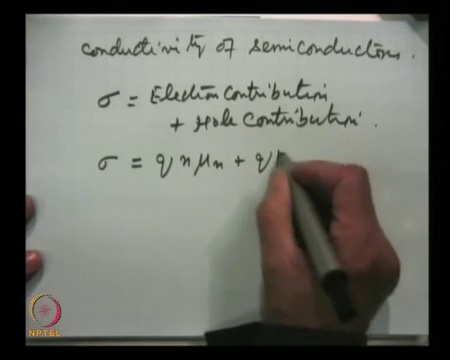 conductivity of semiconductors.
σ = Electron contribution
+ Hole contribution.
σ = q n μn + q
NPTEL